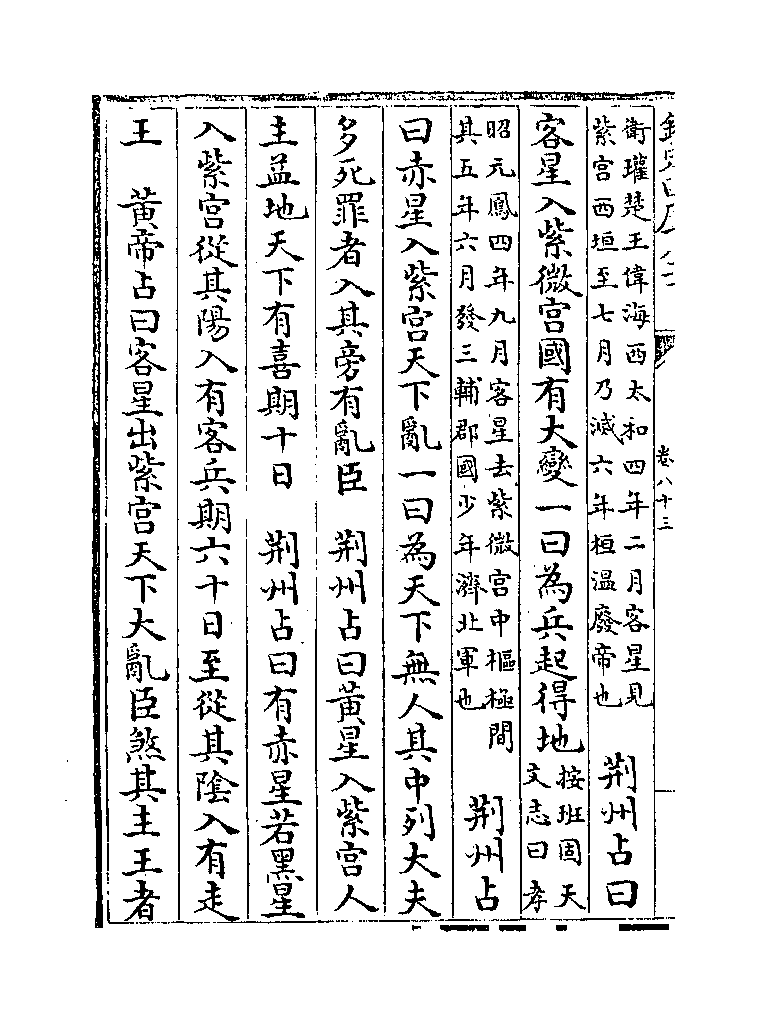 卷八十三
衛瓘楚王偉海西太和四年二月客星見
紫宫西垣至七月乃滅六年桓温廢帝也
荆州占曰
客星入紫微宫國有大變一曰為兵起得地
按班固天
文志曰孝
昭元鳳四年九月客星去紫微宫中樞極間
其五年六月發三輔郡國少年濟北軍也
荆州占
曰赤星入紫宫天下亂一曰為天下無人其中列大夫
多死罪者入其旁有亂臣　荆州占曰黄星入紫宫人
主益地天下有喜期十日　荆州占曰有赤星若黑星
入紫宫從其陽入有客兵期六十日至從其隂入有走
王　黄帝占曰客星出紫宫天下大亂臣煞其主王者